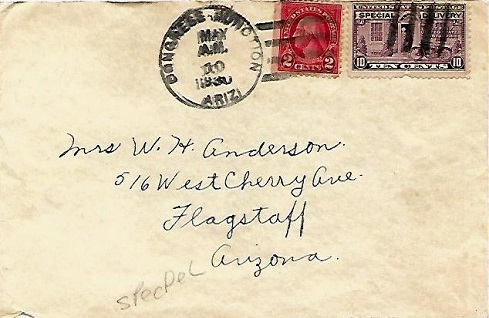 CONGRESS JUNCTION
MAY
A.M.
10
1930
ARIZ.
2 CENTS 2
SPECIAL DELIVERY
10 TEN CENTS 10
Mrs W. H. Anderson.
516 West Cherry Ave.
Flagstaff
Arizona.
SPecDeL